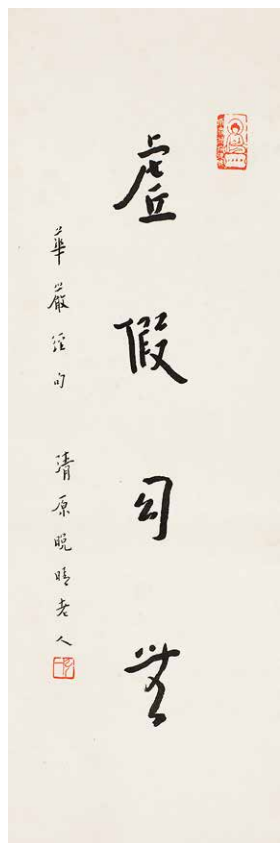 虛假
華嚴經句 清原晚晴老人